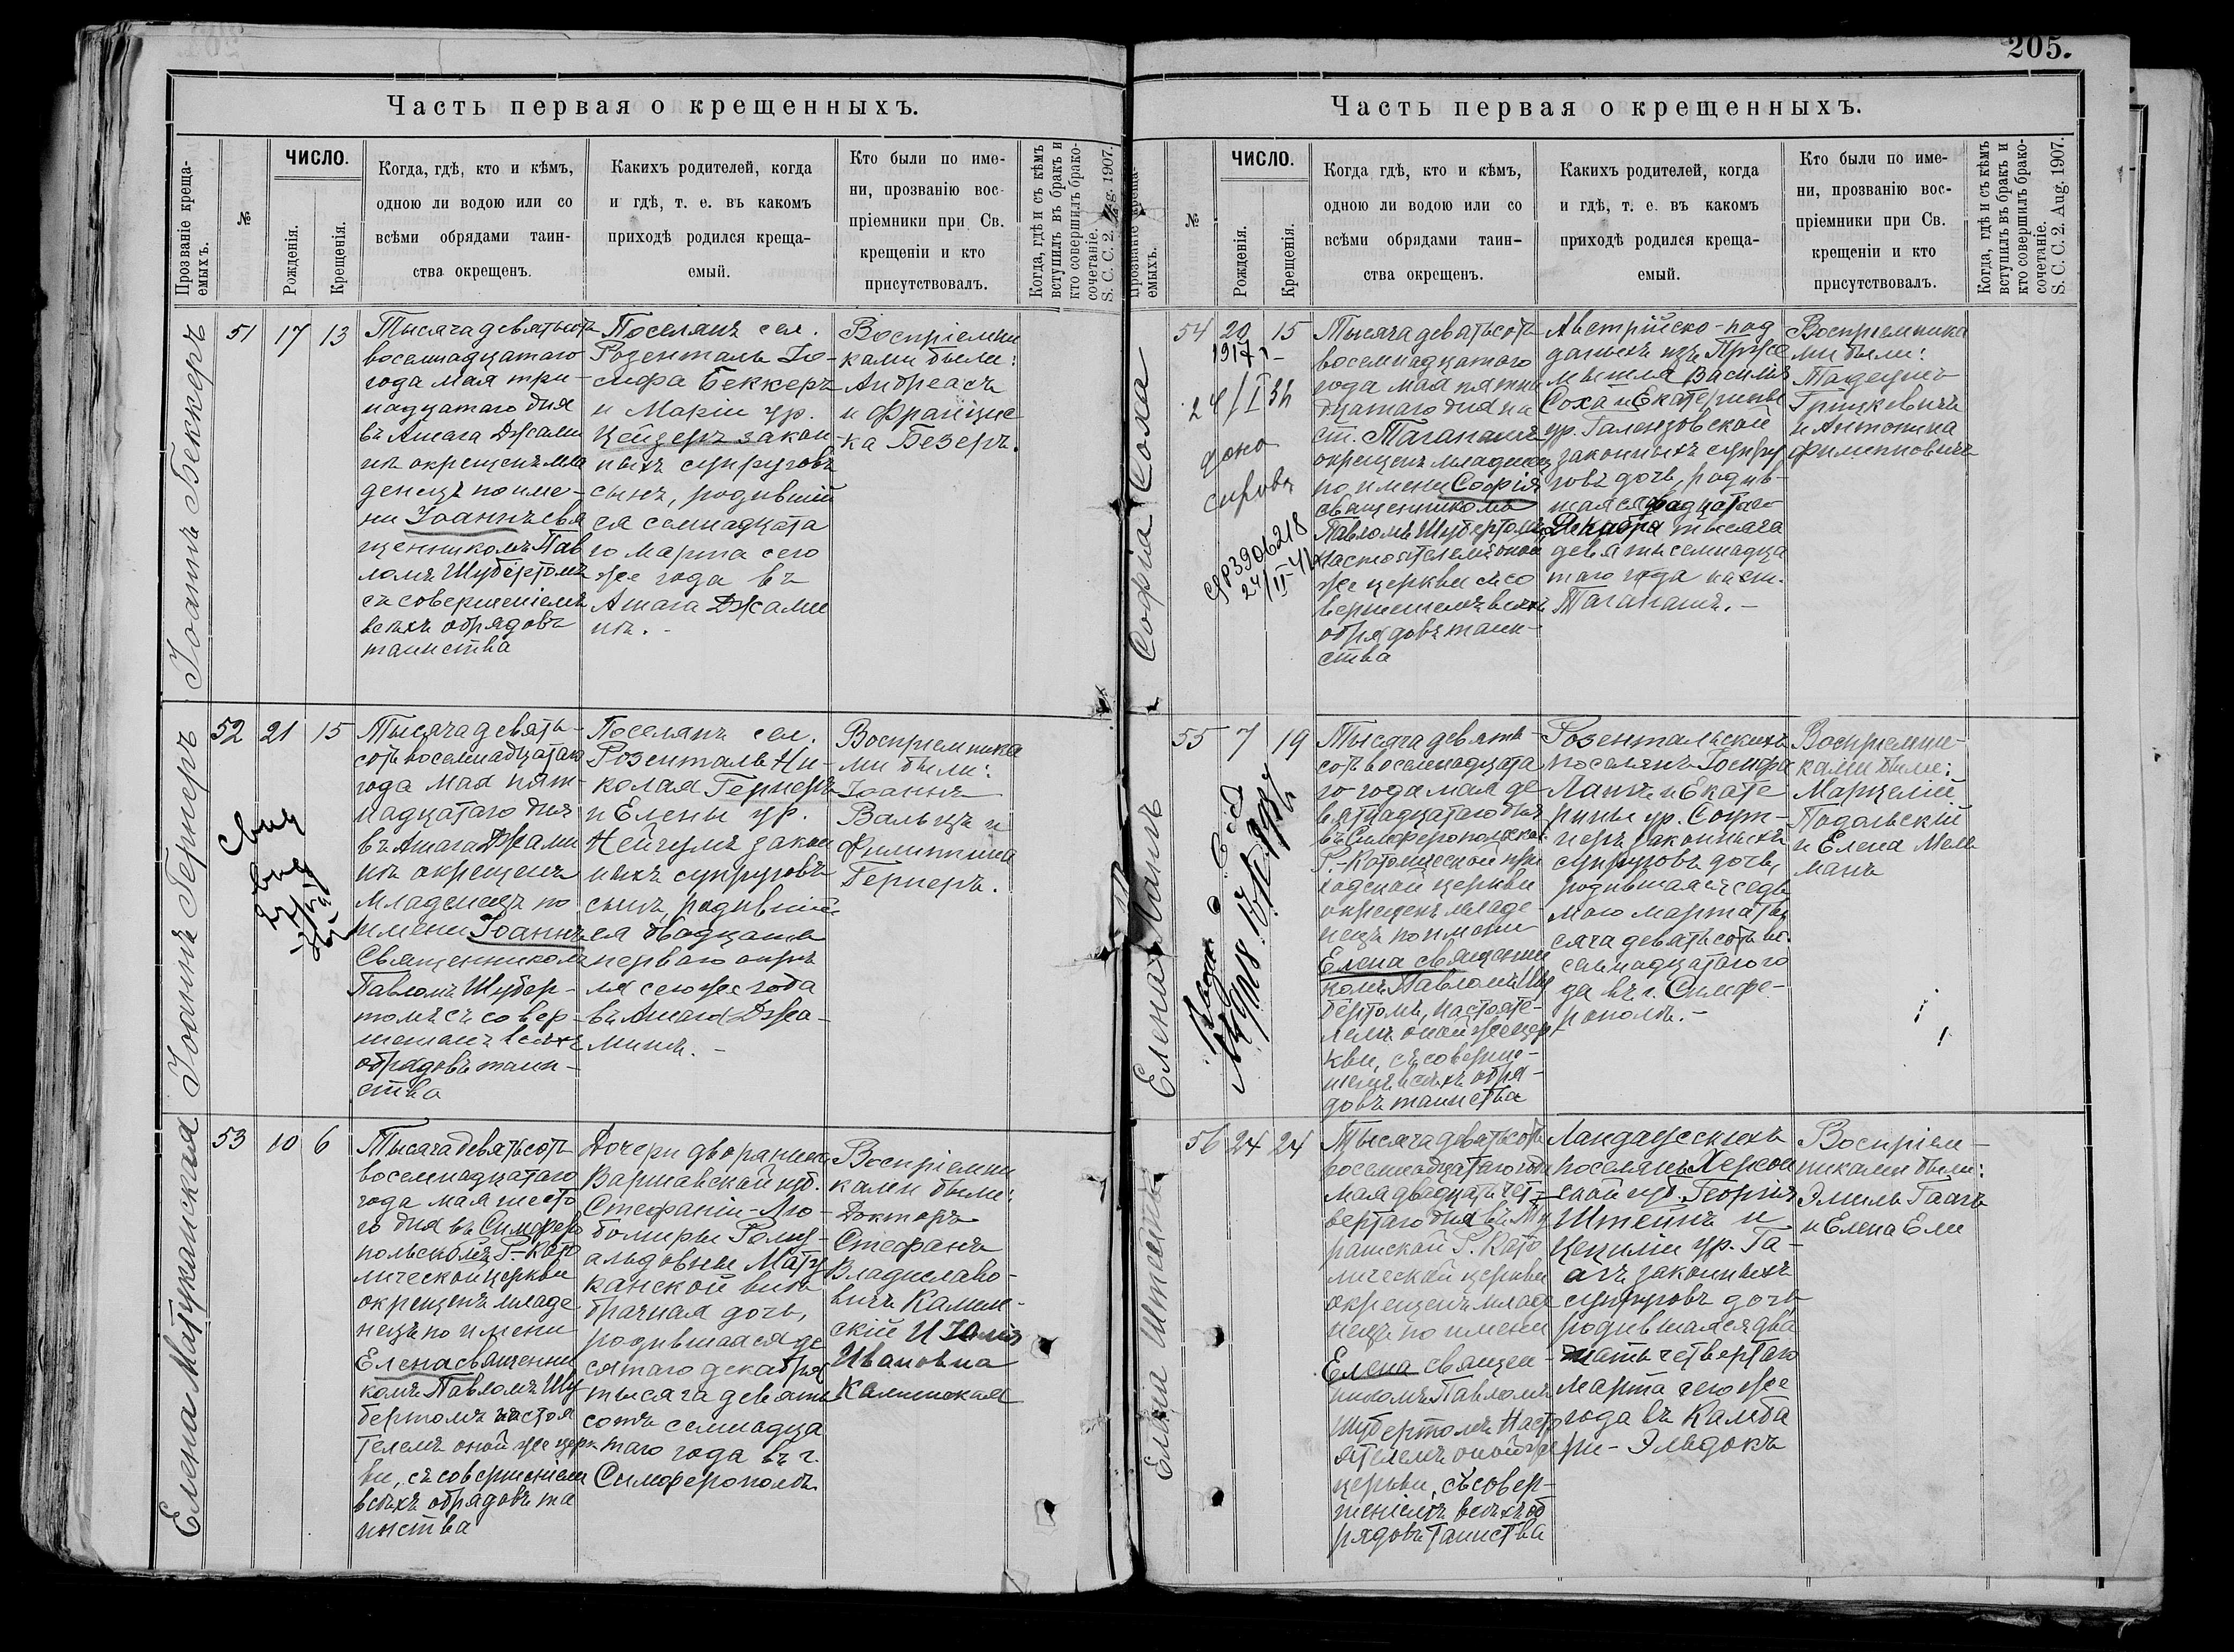 205.
Часть первая о крещенныхъ.
Прозваніе креща-
емыхъ.
№
ЧИСЛО.
Рожденія.
Крещенія.
Когда, гдѣ, кто и кѣмъ,
одною ли водою или со
всѣми обрядами таин-
ства окрещенъ.
Какихъ родителей, когда
и гдѣ, т. е. въ какомъ
приходѣ родился креща-
емый.
Кто были по име-
ни, прозванію вос-
пріемники при Св.
крещеніи и кто
присутствовалъ.
Когда, гдѣ и съ кѣмъ
вступилъ въ бракъ и
кто совершилъ брако-
сочетаніе.
S. C. C. 2. Aug. 1907.
Іоаннъ Беккеръ
51 17 13
Тысяча девятьсотъ
восемнадцатаго
года мая три-
надцатаго дня
въ Атага Джами
нѣ окрещенъ мла
денецъ по име-
ни Іоаннъ свя
щенникомъ Пав
ломъ Шубертомъ
съ совершеніемъ
всѣхъ обрядовъ
таинства
Поселянъ сел.
Розенталь Іо-
сифа Беккеръ
и Маріи ур.
Цейзеръ закон
ныхъ супруговъ
сынъ, родивший
ся семнадцата
го марта сего
же года въ
Атага Джами
нѣ. -
Воспріемни
ками были:
Андреасъ
и Францис
ка Безеръ.
Іоаннъ Гернеръ
52 21 15
Тысяча девять-
сотъ восемнадцатаго
года мая пят-
надцатаго дня
въ Атага Джами
нѣ окрещенъ
младенецъ по
имени Іоаннъ
Священникомъ
Павломъ Шубер-
томъ съ совер-
шеніемъ всѣхъ
обрядовъ таин-
ства
Поселянъ сел.
Розенталь Ни-
колая Гернеръ
и Елены ур.
Нейгумъ закон
ныхъ супруговъ
сынъ, родившій
ся двадцать
перваго апрѣ
ля сего же года
въ Атага Джа-
минѣ. -
Воспріемника
ми были:
Іоаннъ
Вальцъ и
Филиппина
Гернеръ.
Елена Матуканская
53 10 6
Тысяча девятьсотъ
восемнадцатаго
года мая шесто
го дня въ Симферо
польской Р.-Като
лической церкви
окрещенъ младе
нецъ по имени
Елена священни
комъ Павломъ Шу
бертомъ настоя
телемъ оной же церк
ви, съ совершеніемъ
всѣхъ обрядовъ та
инства
Дочери дворянина
Варшавской губ.
Стефаніи-Лю-
бомиры Рому-
альдовны Мату
канской внѣ
брачная дочь,
родившаяся де
сятаго декабря
тысяча девять
сотъ семнадца
таго года въ г.
Симферополѣ.
Воспріемни
ками были:
Докторъ
Стефанъ
Владиславо-
вичъ Камин-
скій и Юлія
Ивановна
Каминская
Часть первая о крещенныхъ.
Прозваніе креща-
емыхъ.
№
ЧИСЛО.
Рожденія.
Крещенія.
Когда гдѣ, кто и кѣмъ,
одною ли водою или со
всѣми обрядами таин-
ства окрещенъ.
Какихъ родителей, когда
и гдѣ, т. е. въ какомъ
приходѣ родился креща-
емый.
Кто были по име-
ни, прозванію вос-
пріемники при Св.
крещеніи и кто
присутствовалъ.
Когда, гдѣ и съ кѣмъ
вступилъ въ бракъ и
кто совершилъ брако-
сочетаніе.
S. C. C. 2. Aug. 1907.
Софія Соха
54 20 15
1917 г.
Тысяча девятьсотъ
восемнадцатаго
года мая пятна
дцатаго дня на
ст. Таганашъ
окрещенъ младенец
по имени Софія
священникомъ
Павломъ Шубертомъ
настоятелемъ оной
же церкви съ со
вершеніемъ всѣхъ
обрядовъ таин-
ства
Австрійско-под
даныхъ изъ Прже
мышля Василія
Соха и Екатерины
ур. Галензовской
законныхъ супру
говъ дочь, родив-
шаяся двадцатаго
Декабря тысяча
девятьсемнадца
таго года на ст.
Таганашъ. -
Воспріемника
ми были:
Тадеушъ
Грицкевичъ
и Антонина
Филипповичъ
Елена Лангъ
55 7 19
Тысяча девять-
сотъ восемнадцата
го года мая де-
вятнадцатаго дня
въ Симферопольской
Р.-Католической при
ходской церкви
окрещенъ младе-
нецъ по имени
Елена священни
комъ Павломъ Шу
бертомъ, настояте-
лемъ оной же цер-
кви, съ соверше-
ніемъ всѣхъ обря-
довъ таинства
Розентальскихъ
поселянъ Іосифа
Лангъ и Екате
рины ур.
законныхъ
супруговъ дочь,
родившаяся седь
мого марта ты
сяча девятьсотъ во
семнадцатаго го
да въ г. Симфе-
рополѣ. -
Воспріемни-
ками были:
Марцелій
Подольскій
и Елена Мелл
манъ
Елена Штейнъ
56 24 24
Тысяча девятьсотъ
восемнадцатаго года
мая двадцать чет-
вертаго дня въ
Р. Като
лической церкви
окрещенъ младе
нецъ по имени
Елена священ-
никомъ Павломъ
Шубертомъ Насто
ятелемъ оной же
церкви, съ совер-
шеніемъ всѣхъ об
рядовъ таинства
Ландауескихъ
поселянъ Херсон
ской губ. Георгія
Штейнъ и
Цециліи ур. Га-
агъ законныхъ
супруговъ дочь
родившаяся два
дцать четвертаго
марта сего же
года въ Камба
ри-Эльдокъ
Воспріем-
никами были:
Эмиль Гаагъ
и Елена Ели